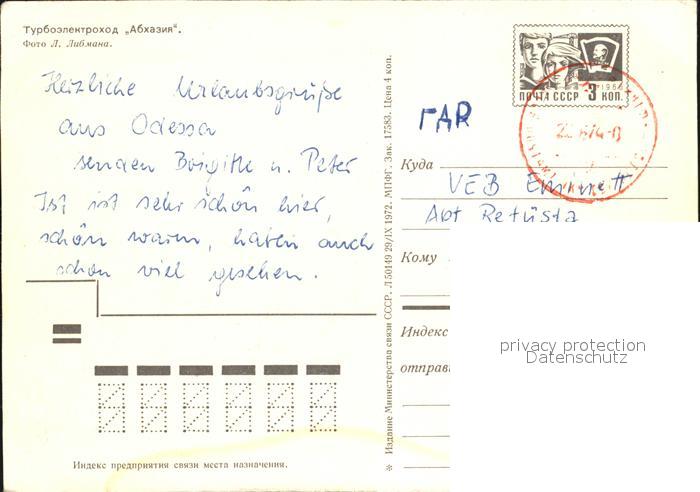 Турбоэлектроход „Абхазия“.
Фото Л. Либмана.
Herzliche Urlaubsgrüße
aus Odessa
senden Brigitte u. Peter
Ist ist sehr schön hier,
schön warm, haben auch
schon viel gesehen.
Индекс предприятия связи места назначения.
Издание Министерства связи СССР. Л 50149 29/IX 1972. МПФГ. Зак. 17583. Цена 4 коп.
1966
ПОЧТА СССР 3 КОП.
ГДР
Куда
VEB
Abt Retusta
Кому
Индекс
отправ
privacy protection
Datenschutz